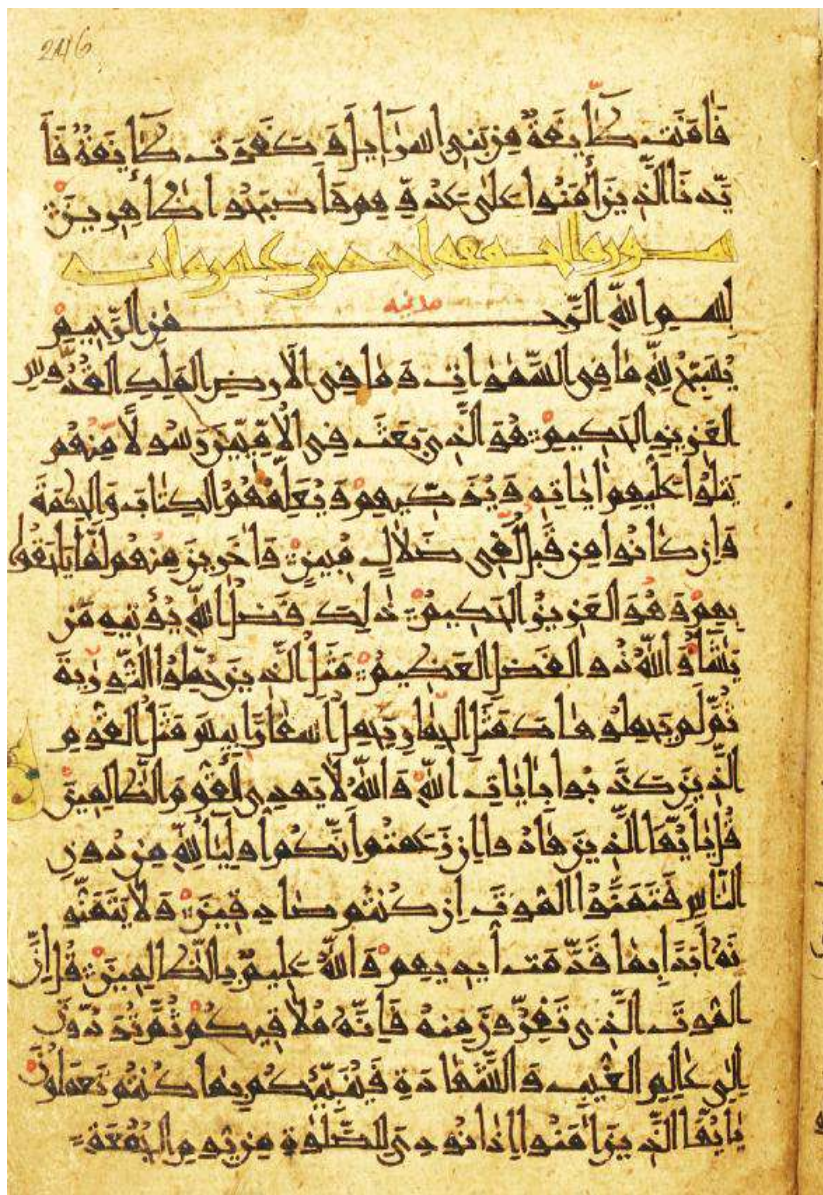 246
فَٔامَنَت طَّايِفَةٌ مِن بَنِى اسرَٰٓايلَ وَ كَفَرَت طَايفَةٌ فَا
يَّدنَا الَّذِينَ أٰمَنُوا عَلىٰ عَدُوِّ هِم فَاَصبَحُوا ظَاهِرِينَ
سورة الجمعة احدى عشره اية
مدنيه
بِسمِ اللّٰهِ الرَّحمٰنِ الرَّحِيمِ
يُسَبِّحُ لِلّٰهِ مَا فِى السَّمٰوَاتِ وَ مَا فِى الاَرضِ المَلِكِ القُدُّوسِ
العَزِيزِ الحَكِيمِ هُوَ الَّذِى بَعَثَ فِى الاُمِّيّينَ رَسُولًا مِّنهُم
يَتلُوا عَلَيهِم اٰيَاتِهِ وَ يُزَكِّيهِم وَ يُعَلِّمُهُمُ الكِتَابَ وَ الحِكمَةَ
وَ اِن كَانُوا مِن قَبلُ لَفِى ضَلَالٍ مُبِينٍ وَ اٰخَرِينَ مِنهُم لَمَّا يَلحَقُوا
بِهِم وَ هُوَ العَزِيزُ الحَكِيمُ ذٰلِكَ فَضلُ اللّٰهِ يُؤتِيهِ مَن
يَشَآءُ وَ اللّٰهُ ذُو الفَضلِ العَظِيمِ مَثَلُ الَّذِينَ حُمِّلُوا التَّورٰيةَ
ثُمَّ لَم يَحمِلُوهَا كَمَثَلِ الحِمَارِ يَحمِلُ اَسفَارًا بِيسَ مَثَلُ القَومِ
الَّذِينَ كَذَّبُوا بِاٰيَاتِ اللّٰهِ وَ اللّٰهُ لَا يَهدِى القَومَ الظَّالِمِينَ
قُل يَا اَيُّهَا الَّذِينَ هَادُوا اِن زَعَمتُم اَنَّكُم اَولِيَآءُ لِلّٰهِ مِن دُونِ
النَّاسِ فَتَمَنَّوُا المَوتَ اِن كُنتُم صَادِقِينَ وَ لَا يَتَمَنَّو
نَهُ اَبَدًا بِمَا قَدَّمَت اَيدِيهِم وَ اللّٰهُ عَلِيمٌ بِالظَّالِمِينَ قُل اِنَّ
المَوتَ الَّذِى تَفِرُّونَ مِنهُ فَاِنَّهُ مُلَاقِيكُم ثُمَّ تُرَدُّونَ
اِلىٰ عَالِمِ الغَيبِ وَ الشَّهَادَةِ فَيُنَبِّئُكُم بِمَا كُنتُم تَعمَلُونَ
يَا اَيُّهَا الَّذِينَ اٰمَنُوا اِذَا نُودِىَ لِلصَّلٰوةِ مِن يَومِ الجُمُعَةِ